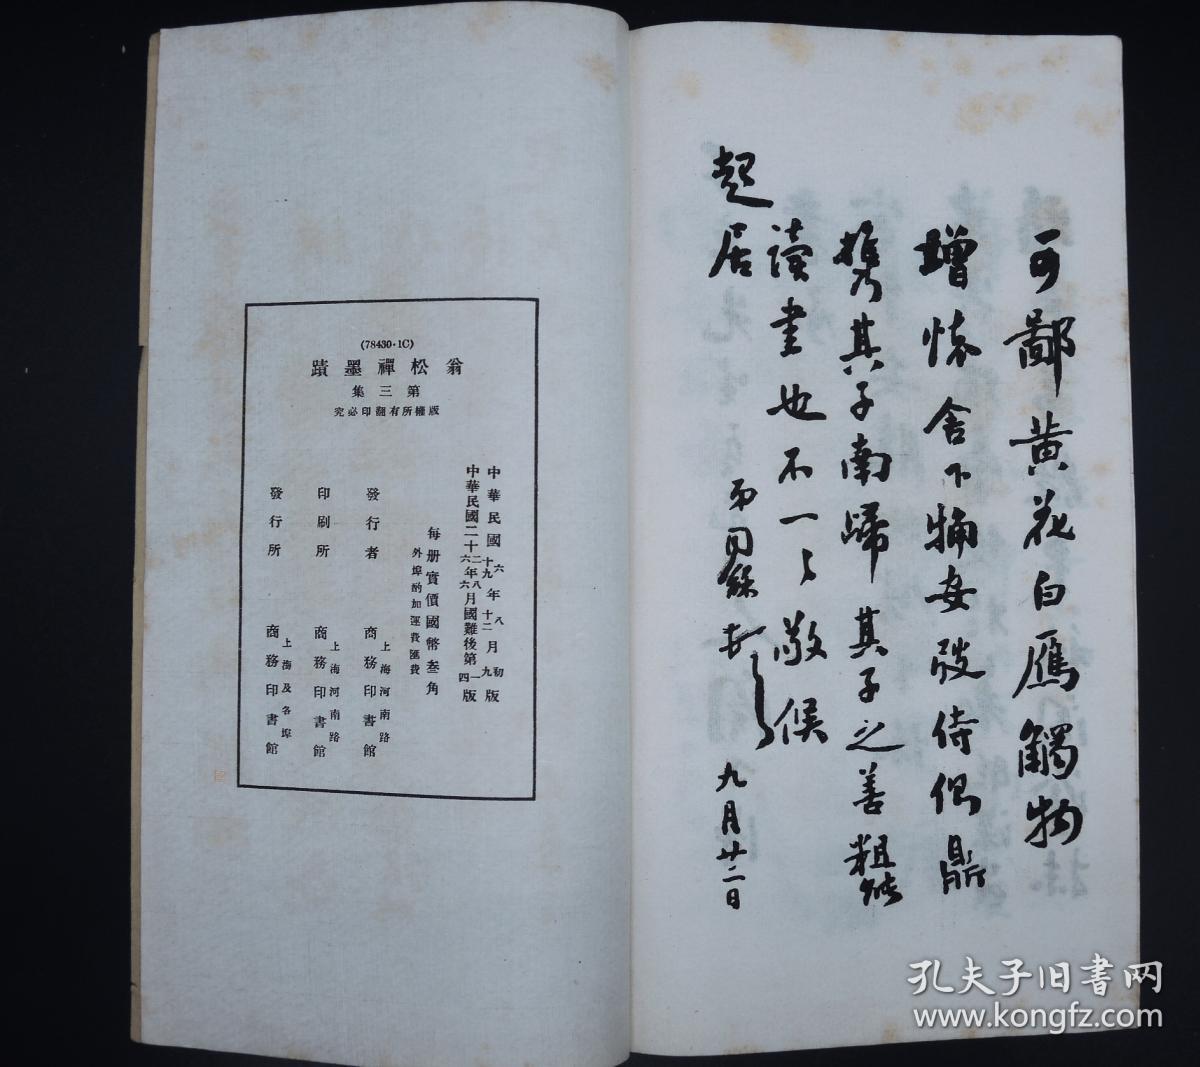 可鄙黃花白雁觸物
增懷舍下安侍偶鼎
攜其子南歸其子之善粗能
讀書也不一〻敬候
起居
弟同龢頓首 九月廿二日
(78430·1C)
翁松禪墨蹟
第三集
版權所有翻印必究
中華民國六年八月初版
十九年十二月九版
中華民國二十二年八月國難後第一版
二十六年六月國難後第四版
每册實價國幣叁角
外埠酌加運費匯費
發行者 上海河南路 商務印書館
印刷所 上海河南路 商務印書館
發行所 上海及各埠 商務印書館
孔夫子旧书网
www.kongfz.com